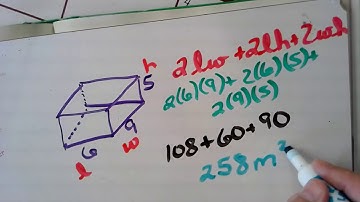 2lw + 2lh + 2wh
2(6)(9) + 2(6)(5) +
2(9)(5)
108 + 60 + 90
258m²
h
5
9
6
w
l